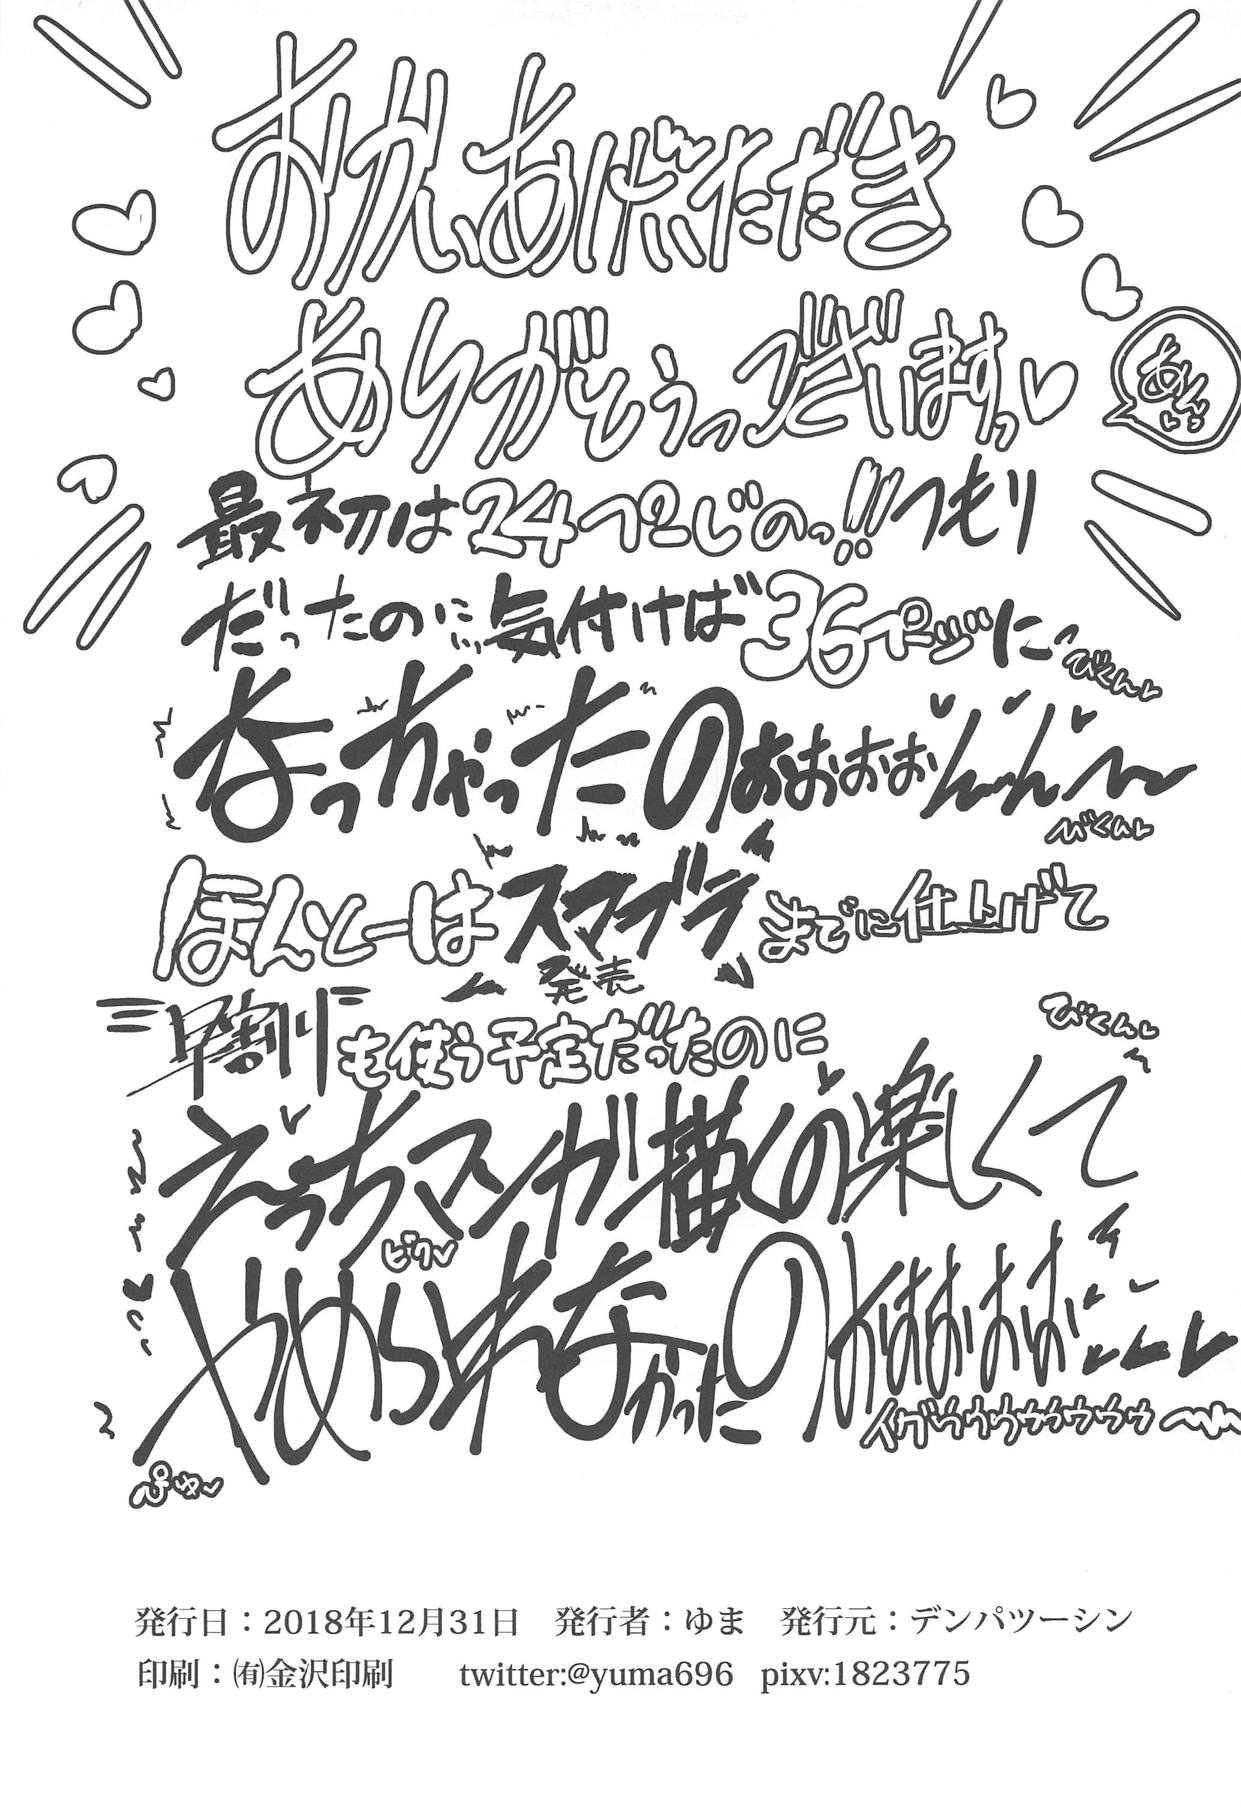 おかいあげいただき
ありがとうっございますっ♡
あんっ♡
最初は24ページのっ!!つもり
だったのに気付けば36ページに
びくん♡
なっちゃったのぉおおおおんんん〜
びくん♡
ほんとーはスマブラ発売までに仕上げて
早割も使う予定だったのに
びくん♡
えっちマンガ描くの楽しくて
ビクッ♡
やめられなかったのおほおおおお
イグゥゥゥゥゥゥゥゥ
ぴゅっ♡
発行日：2018年12月31日　発行者：ゆま　発行元：デンパツーシン
印刷：㈲金沢印刷　　twitter:@yuma696　pixv:1823775